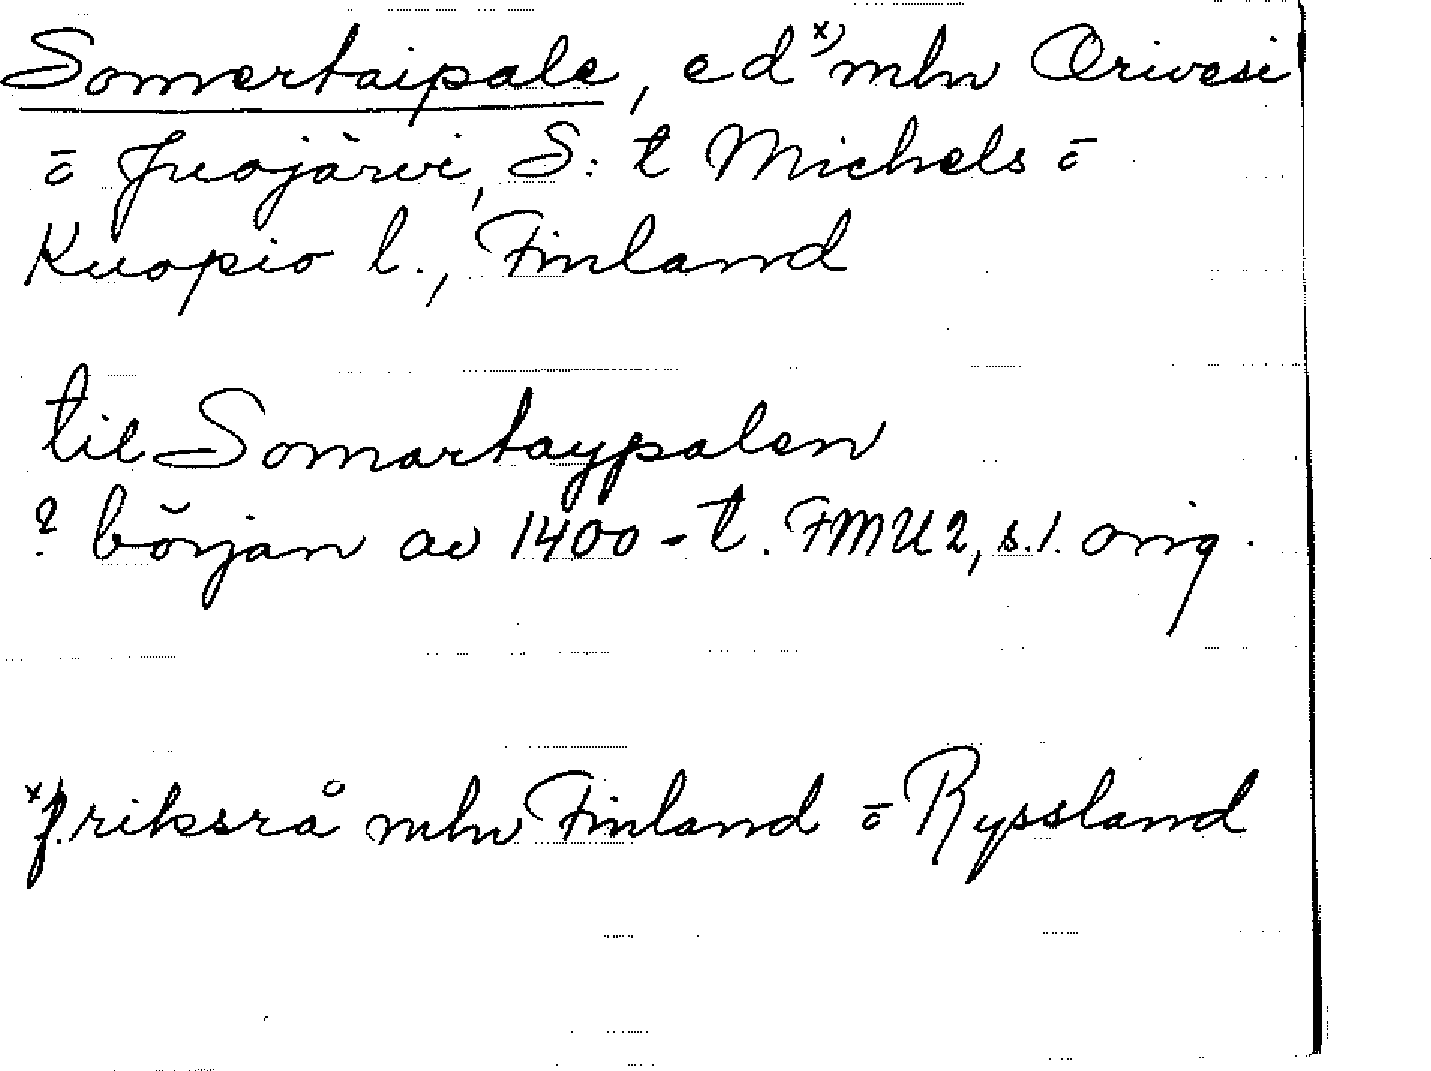 Somertaipale, e d x) mln Orivesi
o Juojärvi, S:t Michels o
Kuopio l., Finland
til Somartaypalen
? början av 1400-t. FMU 2, s.1. orig.
x) f. riksrå mln Finland o Ryssland